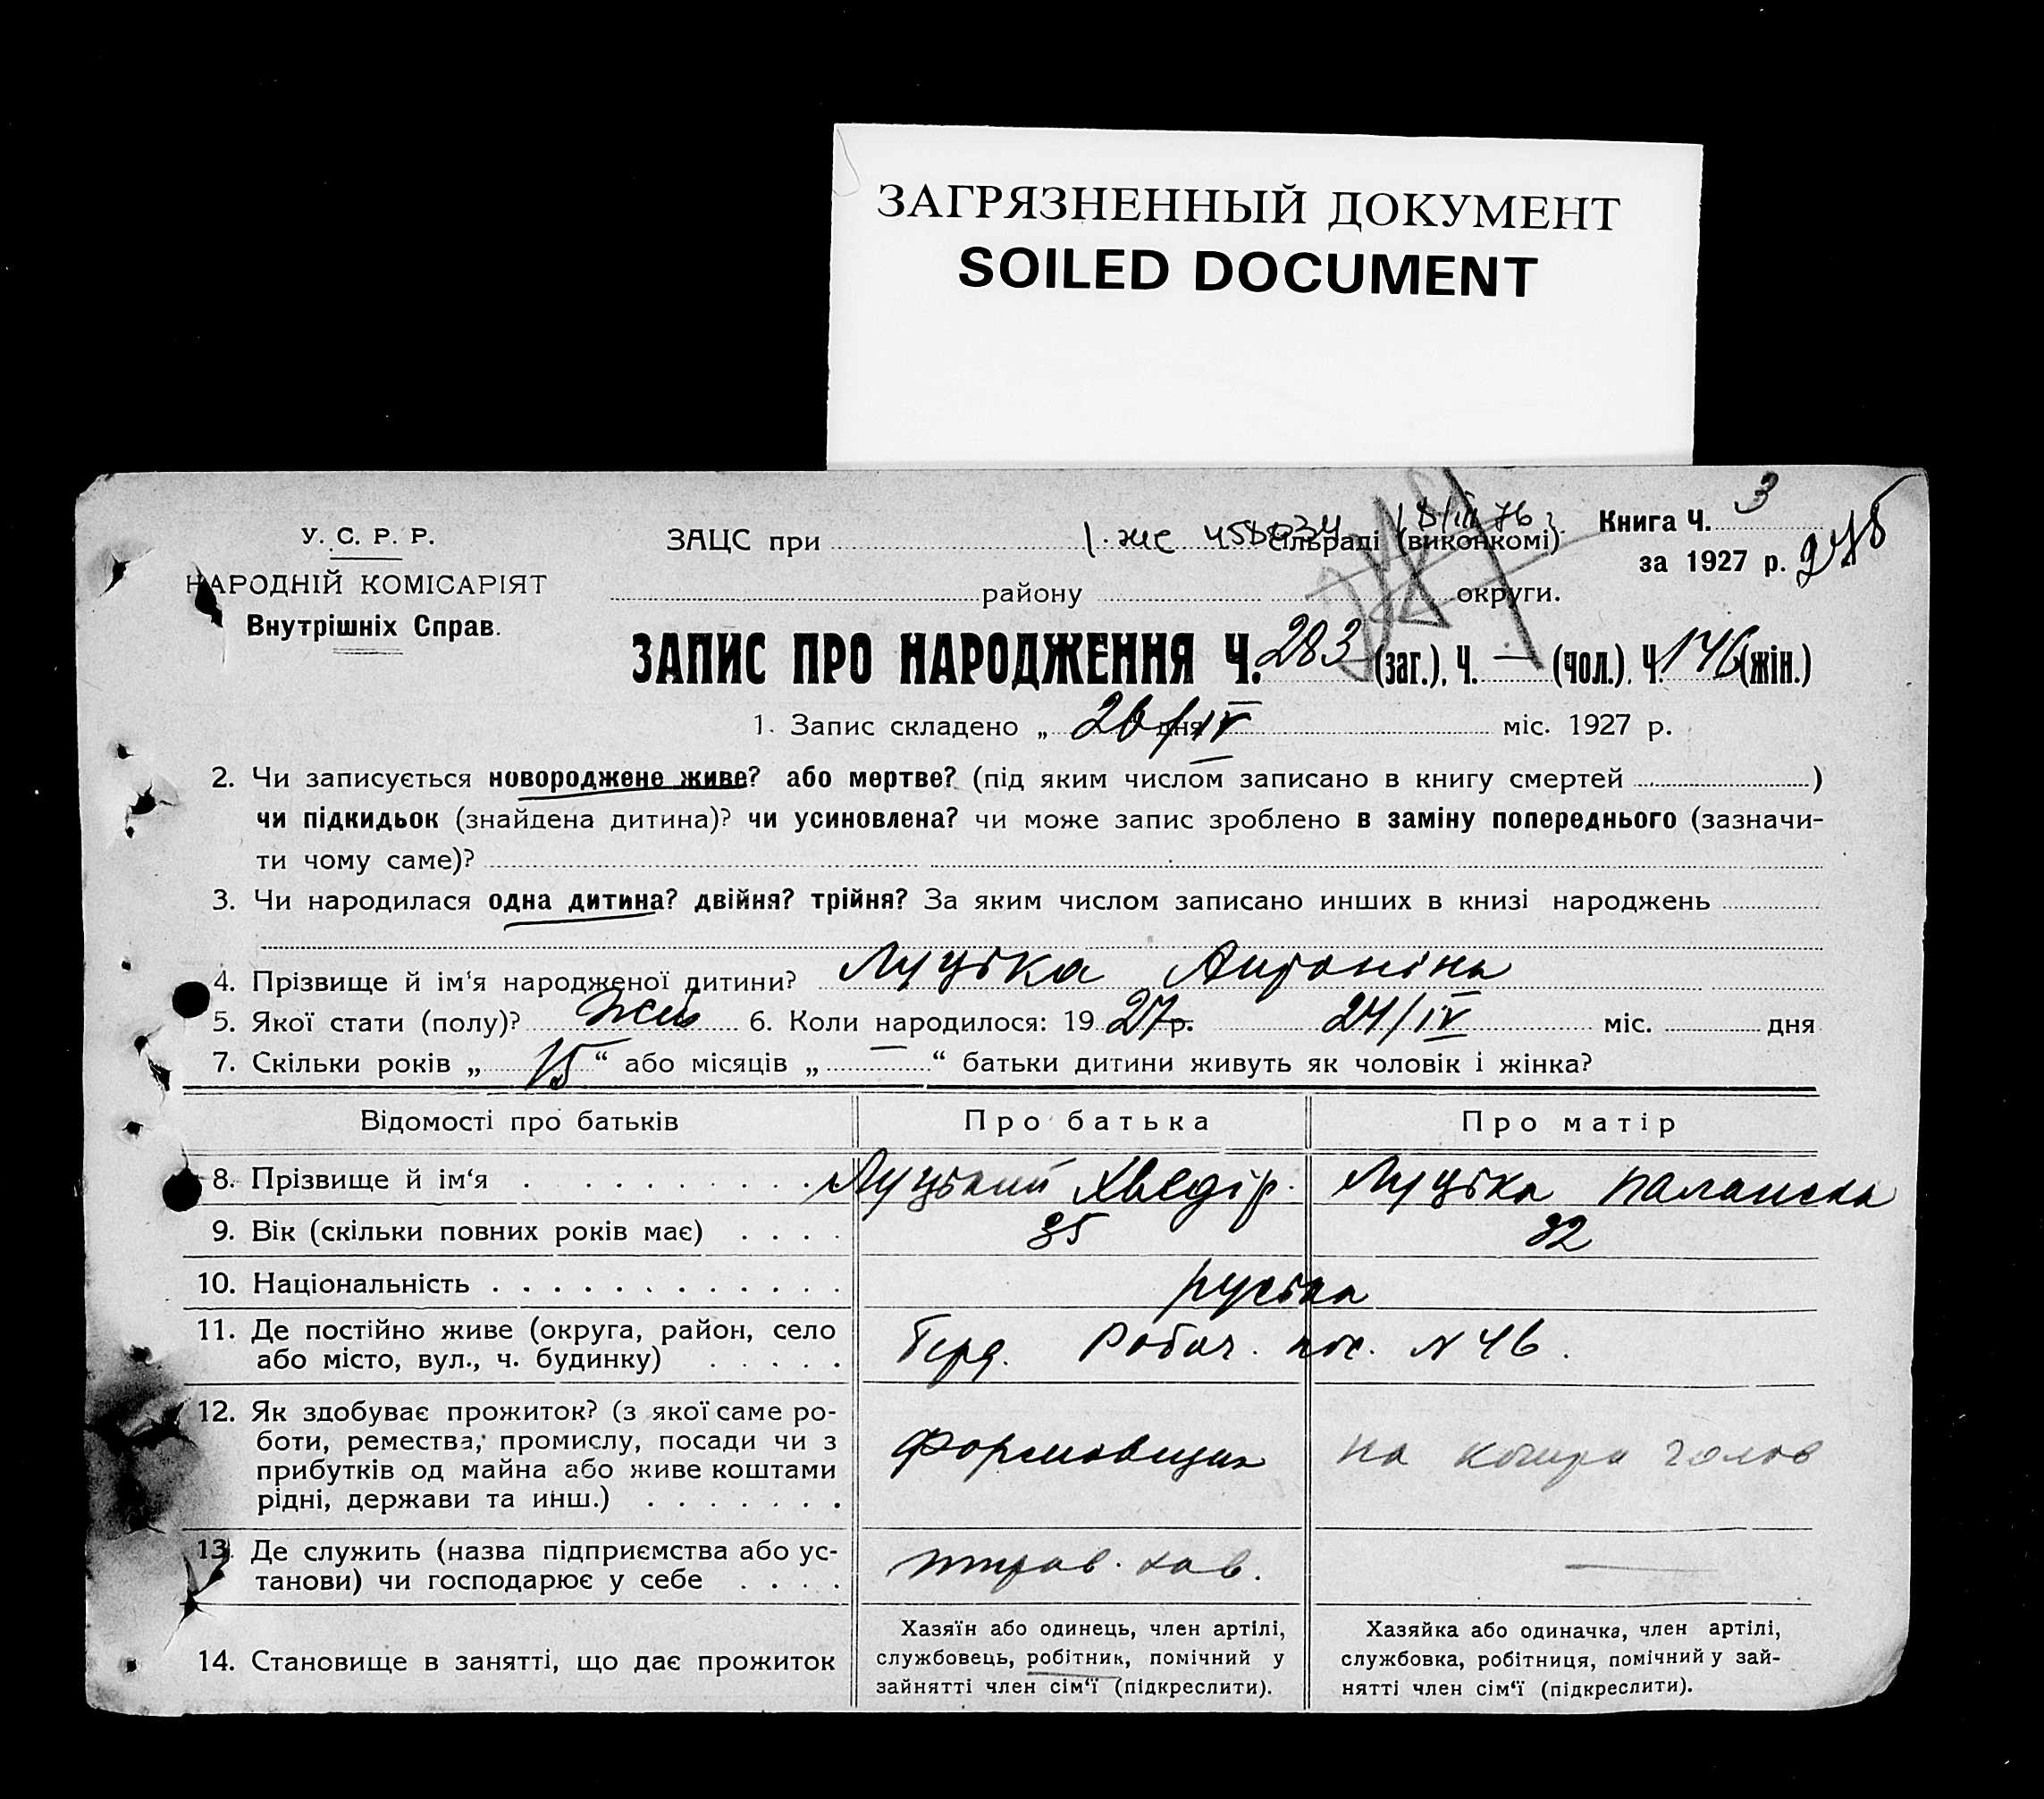 ЗАГРЯЗНЕННЫЙ ДОКУМЕНТ
SOILED DOCUMENT
У. С. Р. Р.
НАРОДНІЙ КОМІСАРІЯТ
Внутрішніх Справ.
ЗАЦС при сільраді (виконкомі)
району округи.
Книга Ч. 3
за 1927 р.
ЗАПИС ПРО НАРОДЖЕННЯ Ч. 283 (заг.), Ч. — (чол.), Ч. 146 (жін.)
1. Запис складено „ 26/IV дня міс. 1927 р.
2. Чи записується новороджене живе? або мертве? (під яким числом записано в книгу смертей )
чи підкидьок (знайдена дитина)? чи усиновлена? чи може запис зроблено в заміну попереднього (зазначи-
ти чому саме)?
3. Чи народилася одна дитина? двійня? трійня? За яким числом записано инших в книзі народжень
4. Прізвище й ім'я народженої дитини? Луцька Антоніна
5. Якої стати (полу)? жін 6. Коли народилося: 1927 р. 24/IV міс. дня
7. Скільки років „ 15 “ або місяців „ — “ батьки дитини живуть як чоловік і жінка?
Відомості про батьків Про батька Про матір
8. Прізвище й ім'я Луцький Хведір Луцька Палажка
9. Вік (скільки повних років має) 35 32
10. Національність руська
11. Де постійно живе (округа, район, село
або місто, вул., ч. будинку)
Робоч. пос. N 46.
12. Як здобуває прожиток? (з якої саме ро-
боти, ремества, промислу, посади чи з
прибутків од майна або живе коштами
рідні, держави та инш.)
Формовщик на кошти голов
13. Де служить (назва підприємства або ус-
танови) чи господарює у себе
—
14. Становище в занятті, що дає прожиток
Хазяїн або одинець, член артілі,
службовець, робітник, помічний у
зайнятті член сім'ї (підкреслити).
Хазяйка або одиначка, член артілі,
службовка, робітниця, помічний у зай-
нятті член сім'ї (підкреслити).